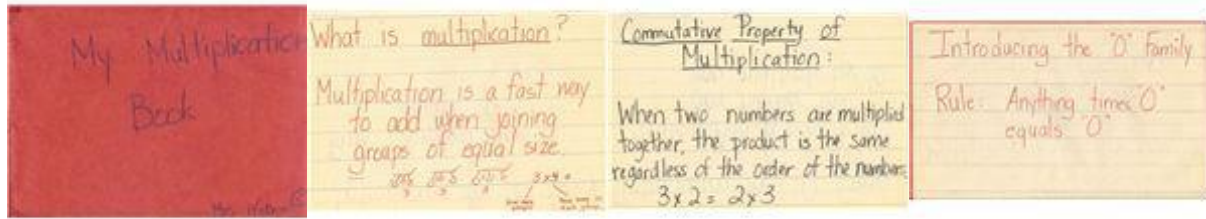 My Multiplication
Book
What is multiplication?
Multiplication is a fast way
to add when joining
groups of equal size.
Commutative Property of
Multiplication:
When two numbers are multiplied
together, the product is the same
regardless of the order of the numbers.
3 x 2 = 2 x 3
Introducing the "0" Family
Rule: Anything times "0"
equals "0"